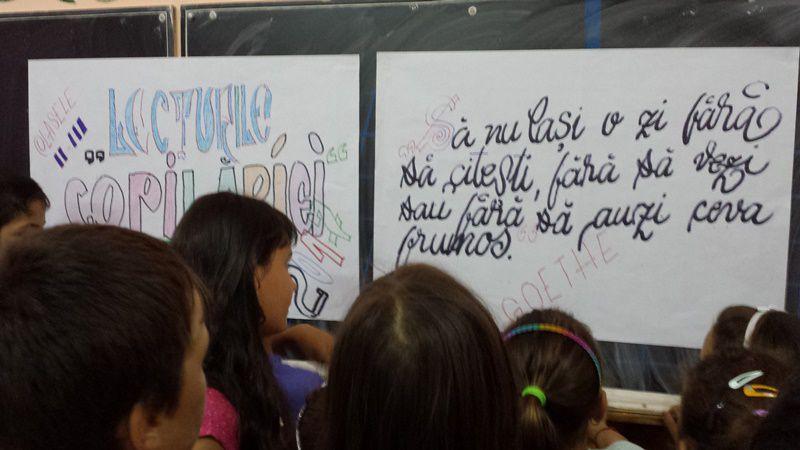 CLASELE
II III
„LECTURILE
COPILĂRIEI”
„Să nu lași o zi fără
să citești, fără să vezi
sau fără să auzi ceva
frumos.”
GOETHE